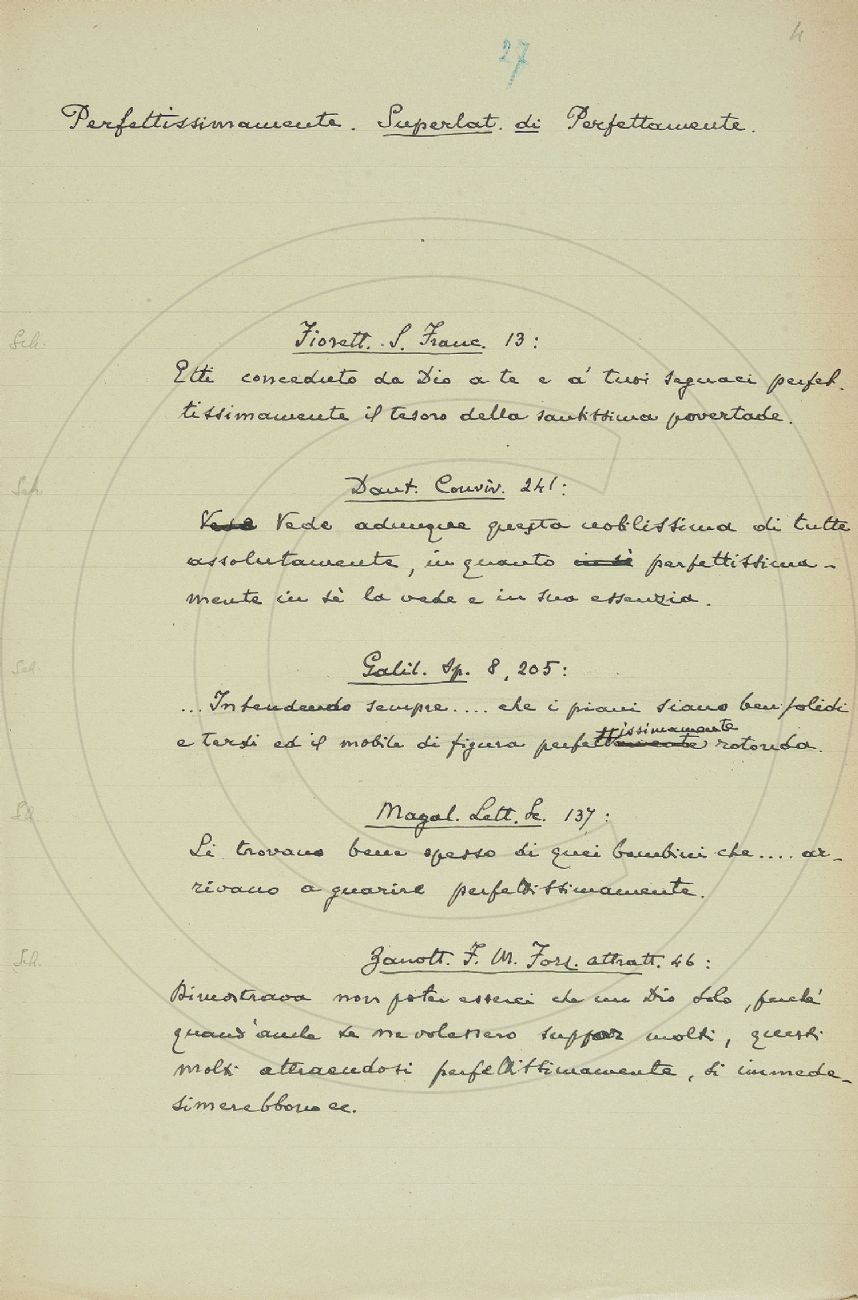 27
4
Perfettissimamente. Superlat. di Perfettamente.
Sch.
Fiorett. S. Franc. 13:
Etti conceduto da Dio a te e a' tuoi seguaci perfet-
tissimamente il tesoro della santissima povertade.
Sch.
Dant. Conviv. 241:
Vede Vede adunque questa nobilissima di tutte
assolutamente, in quanto in sè perfettissima-
mente in sè la vede e in sua essenzia.
Sch.
Galil. Sp. 8, 205:
... Intendendo sempre.... che i piani siano ben politi
e tersi ed il mobile di figura perfettamente issimamente rotonda.
Magal. Lett. Sc. 137:
Si trovano bene spesso di quei bambini che.... ar-
rivano a guarire perfettissimamente.
Sch.
Zanott. F. M. Forz. attratt. 46:
Dimostrava non poter esserci che un Dio solo, perchè
quand'anche se ne volessero suppor molti, questi
molti attraendosi perfettissimamente, si immede-
simerebbono ec.